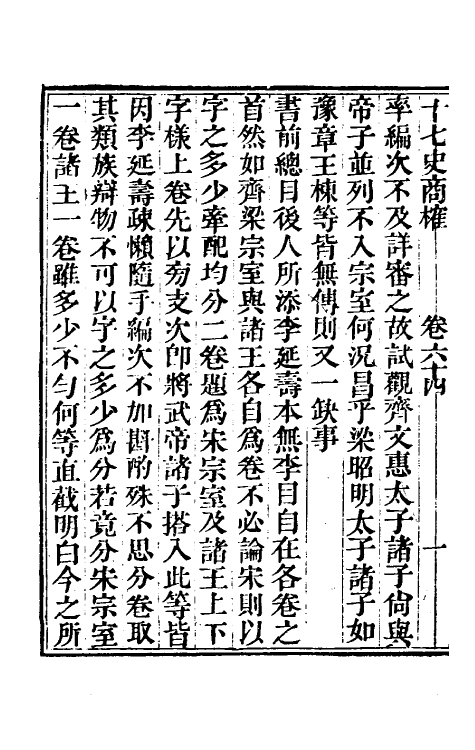 十七史商榷　卷六十四　一
率編次不及詳審之故試觀齊文惠太子諸子尙與
帝子並列不入宗室何況昌乎梁昭明太子諸子如
豫章王棟等皆無傳則又一缺事
書前總目後人所添李延壽本無李目自在各卷之
首然如齊梁宗室與諸王各自爲卷不必論宋則以
字之多少牽配均分二卷題爲宋宗室及諸王上下
字樣上卷先以旁支次卽將武帝諸子搭入此等皆
因李延壽疎懶隨手編次不加斟酌殊不思分卷取
其類族辯物不可以字之多少爲分若竟分宋宗室
一卷諸王一卷雖多少不勻何等直截明白今之所